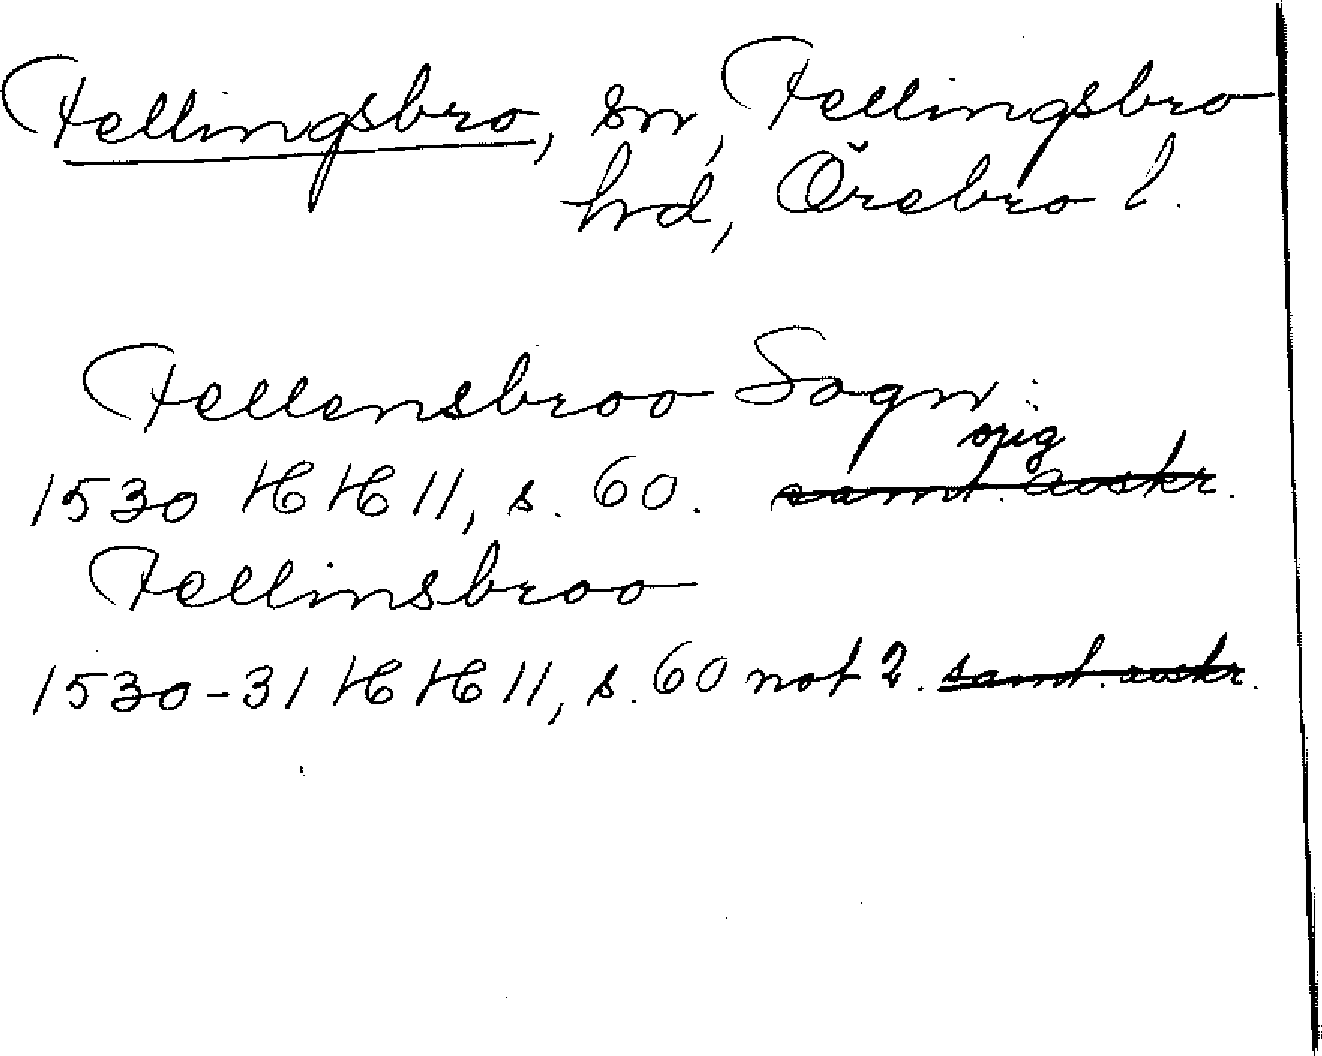 Fellingsbro, sn, Fellingsbro
hd, Örebro l.
Fellensbroo Sogn:
orig
1530 HH 11, s. 60. samt. avskr.
Fellinsbroo
1530-31 HH 11, s. 60 not 2. samt. avskr.